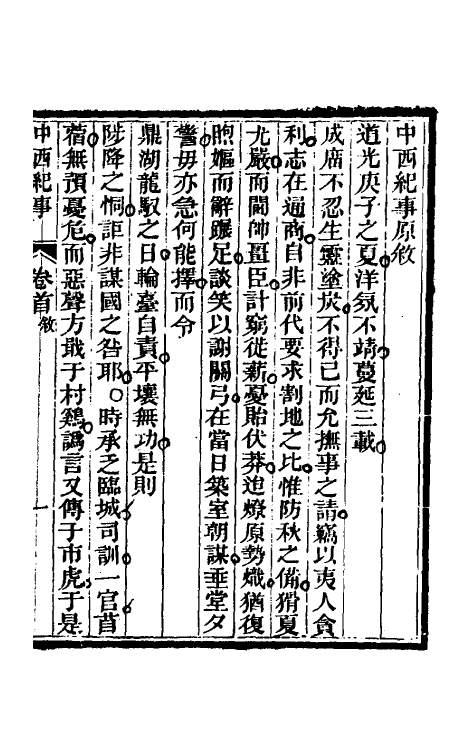 中西紀事原敘
道光庚子之夏洋氛不靖蔓延三載
成廟不忍生靈塗炭不得已而允撫事之請竊以夷人貪
利志在通商自非前代要求割地之比惟防秋之備猾夏
尤嚴而閫帥畺臣計窮徙薪憂貽伏莽迨燎原勢熾猶復
煦嫗而辭躧足談笑以謝關弓在當日築室朝謀垂堂夕
警毋亦急何能擇而令
鼎湖龍馭之日輪臺自責平壤無功是則
陟降之恫詎非謀國之咎耶〇時承乏臨城司訓一官苜
蓿無預憂危而惡聲方戢于村鷄譌言又傳于市虎于是
中西紀事
卷首敘
一